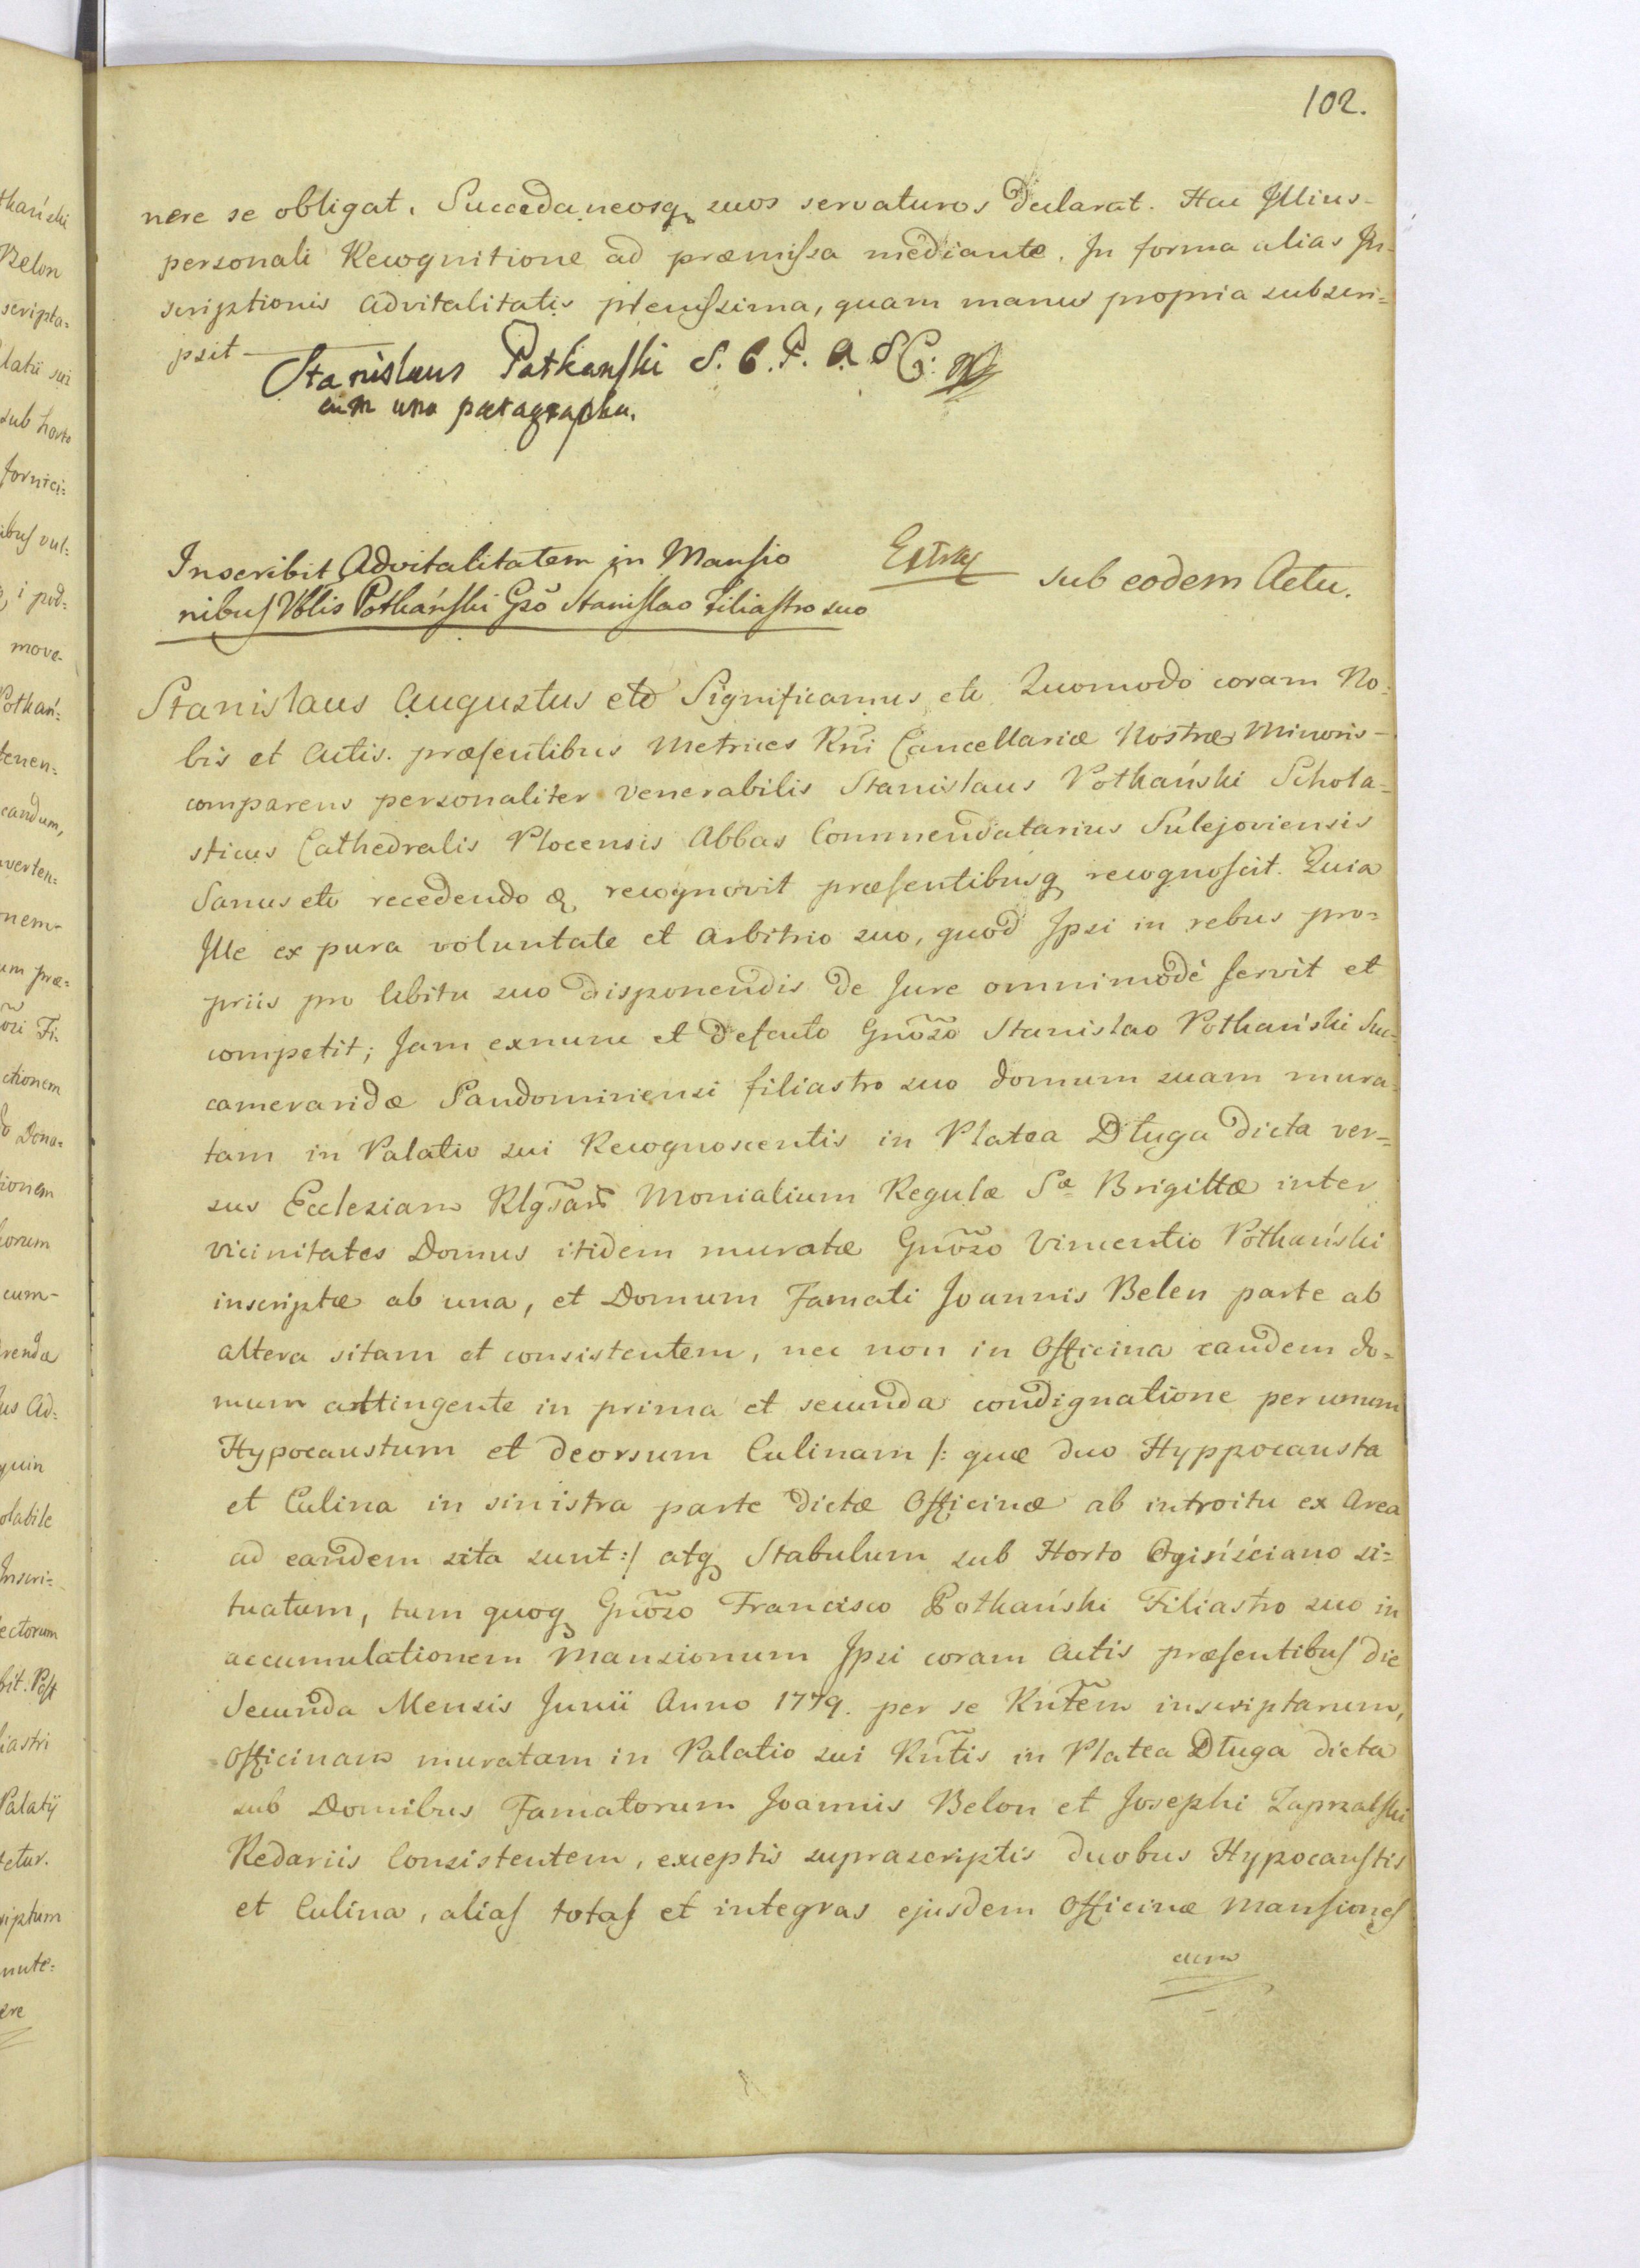 102.
nere se obligat. Succedaneosq suos servaturos declarat. Hac Illius
personali Recognitione ad præmissa mediante. In forma alias In-
scriptionis advitalitatis plenissima, quam manus propria subscri-
psit
Stanislaus Potkanski S. C. P. A. S C:
cum una paragrapha.
Inscribit Advitalitatem in Mansio
nibus Vblis Potkański Gsō Stanislao Filiastro suo
Extrad
sub eodem Actu.
Stanislaus Augustus etc Significamus etc Quomodo coram No-
bis et Actis præsentibus Metrices Rnī Cancellariæ Nostræ Minoris
comparens personaliter Venerabilis Stanislaus Potkański Schola-
sticus Cathedralis Plocensis Abbas Commendatarius Sulejoviensis
Sanus etc recedendo & recognovit præsentibusq recognoscit. Quia
Ille ex pura voluntate et Arbitrio suo, quod Ipsi in rebus pro-
priis pro libitu suo disponendis de Jure omnimodè servit et
competit; Jam exnunc et defacto Gnōso Stanislao Potkański Suc-
cameraridæ Sandomiriensi filiastro suo domum suam mura-
tam in Palatio sui Recognoscentis in Platea Długa dicta ver-
sus Ecclesiam Rlgsarū Monialium Regulæ Sæ Brigittæ inter
vicinitates Domus itidem muratæ Gnōso Vincentio Potkański
inscriptæ ab una, et Domum Famati Joannis Belen parte ab
altera sitam et consistentem, nec non in Officina eandem do-
mum attingente in prima et secunda condignatione per unum
Hypocaustum et deorsum Culinam /: quæ duo Hyppocausta
et Culina in sinistra parte dictæ Officinæ ab introitu ex Area
ad eandem sita sunt :/ atq Stabulum sub Horto Ogińściano si-
tuatum, tum quoq Gnōso Francisco Potkański Filiastro suo in
accumulationem Mansionum Ipsi coram Actis præsentibus die
Secunda Mensis Junii Anno 1779. per se Rntēm inscriptarum,
Officinam muratam in Palatio sui Rntīs in Platea Długa dicta
sub Domibus Famatorum Joannis Belon et Josephi Zaprzalski
Redariis Consistentem, exceptis suprascriptis duobus Hypocaustis
et Culina, alias totas et integras ejusdem Officinæ Mansiones
cum